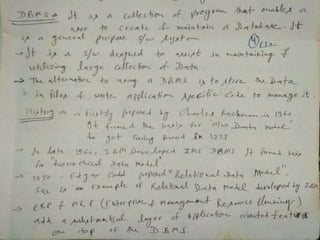 DBMS → It is a collection of program that enables a
user to create & maintain a Database. It
is a general purpose s/w system.
→ It is a s/w designed to assist in maintaining &
utilizing large collection of Data.
→ The alternative to using a DBMS is to store the Data
in files & write application specific code to manage it.
History → Firstly proposed by Charles Bachman in 1960.
It formed the basis for N/w Data model
to get Turing Award in 1973
→ In late 1960. IBM Developed IMS DBMS It formed basis
for "hierarchical Data model".
→ 1970. Edgar Codd proposed "Relational Data Model".
SQL is an Example of Relational Data model developed by IBM
→ ERP & MRP (Enterprise & management Resource Planning)
add a substantial layer of application oriented features
on top of the DBMS.